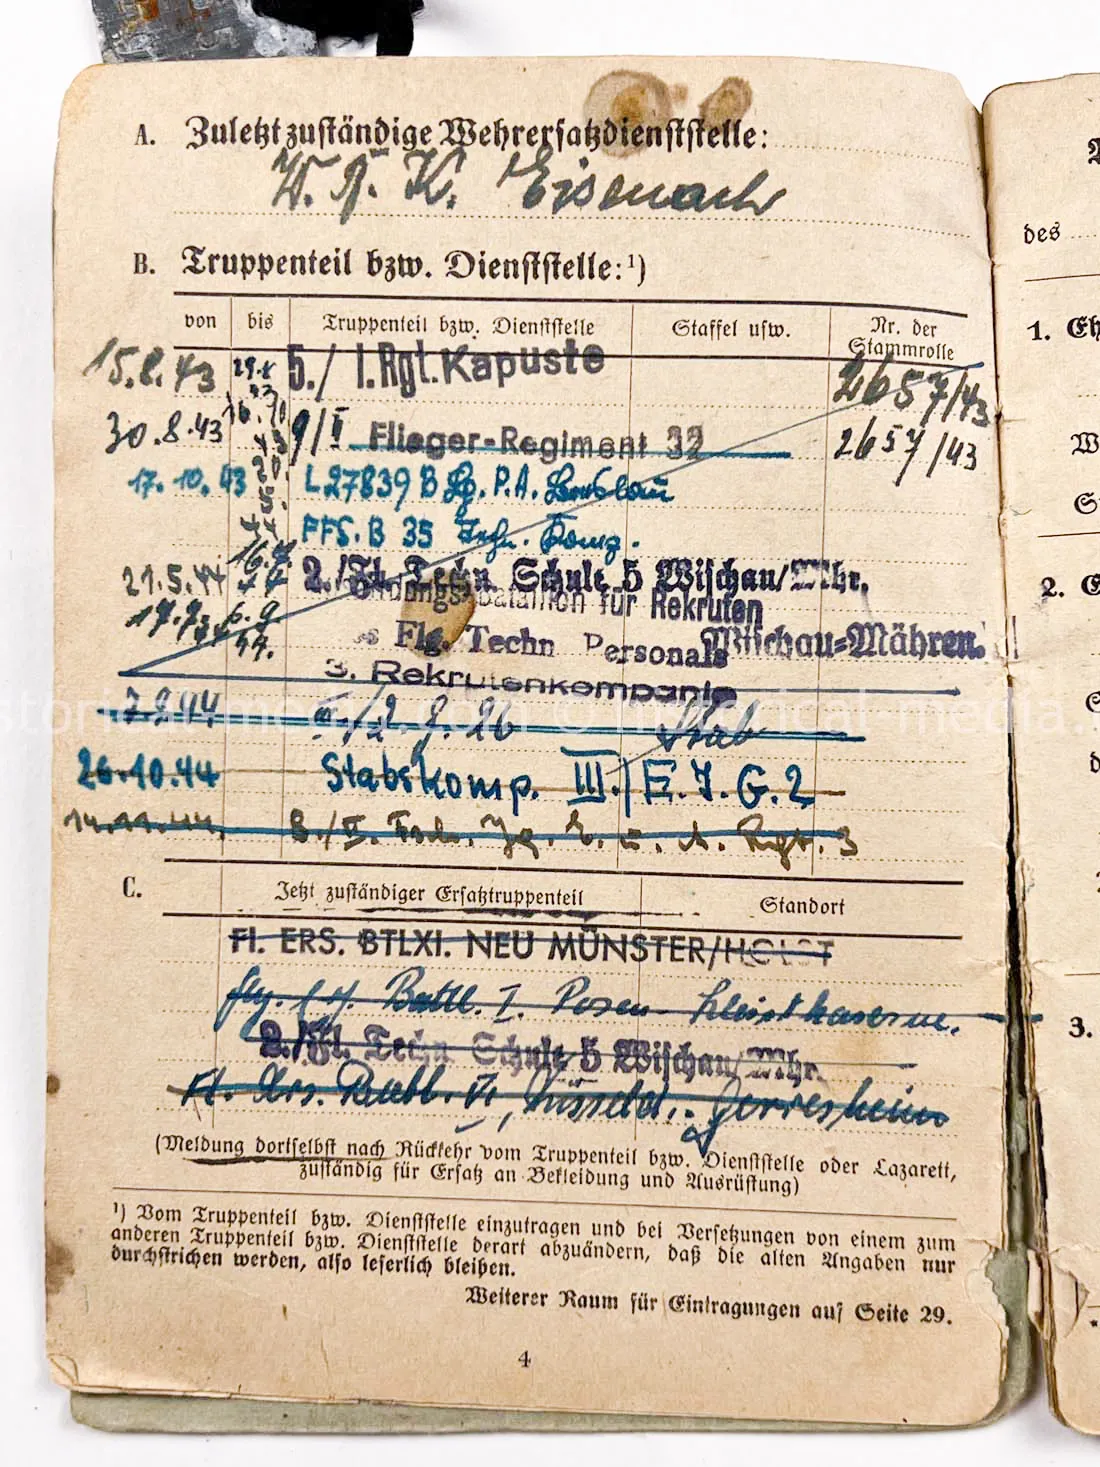 A. Zuletzt zuständige Wehrersatzdienststelle:
W. K. Eisenach
B. Truppenteil bzw. Dienststelle:¹)
von bis Truppenteil bzw. Dienststelle Staffel usw. Nr. der Stammrolle
15.8.43 29.8 43 5./ I.Rgt. Kapuste 2657/43
30.8.43 16.10 43 9/II Flieger-Regiment 32 2657/43
17.10.43 20.5. 44 L27839 B Lg. P.A.
FFS. B 35 Techn. Komp.
21.5.44 16.7. 44 2./Fl. Techn. Schule 5 Wischau/Mhr.
17.7. 44 6.9 44. bataillon für Rekruten
Flg. Techn Personals Wischau-Mähren.
3. Rekrutenkompanie
7.9.44 Stab
26.10.44 Stabskomp. III./E.J.G.2
14.11.44. Rgt. 3
C. Jetzt zuständiger Ersatztruppenteil Standort
Fl. ERS. BTLXI. NEU MÜNSTER/HOLST
Batll. I. Posen Kleistkaserne.
2./Fl. Techn Schule 5 Wischau/Mhr.
Fl. Ers. Batl. VI, Düsseld.-Gerresheim
(Meldung dortselbst nach Rückkehr vom Truppenteil bzw. Dienststelle oder Lazarett,
zuständig für Ersatz an Bekleidung und Ausrüstung)
¹) Vom Truppenteil bzw. Dienststelle einzutragen und bei Versetzungen von einem zum
anderen Truppenteil bzw. Dienststelle derart abzuändern, daß die alten Angaben nur
durchstrichen werden, also leserlich bleiben.
Weiterer Raum für Eintragungen auf Seite 29.
4
des
1.
2.
3.